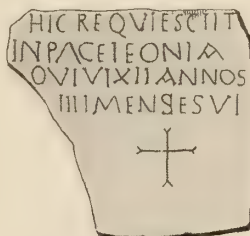 HIC REQVIESCIIT
INPACEIEONIA
OVIVIXIIANNOS
IIIIMENSESVI